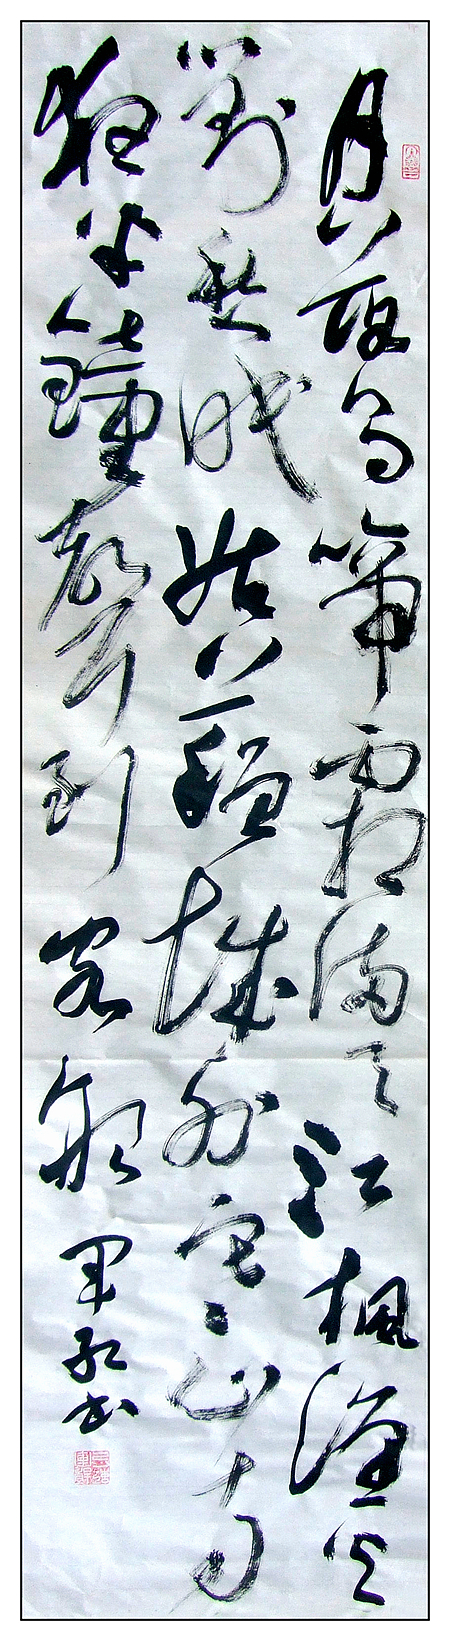 月落烏啼霜滿天江楓漁火
對愁眠姑蘇城外寒山寺
夜半鐘聲到客船 軍書